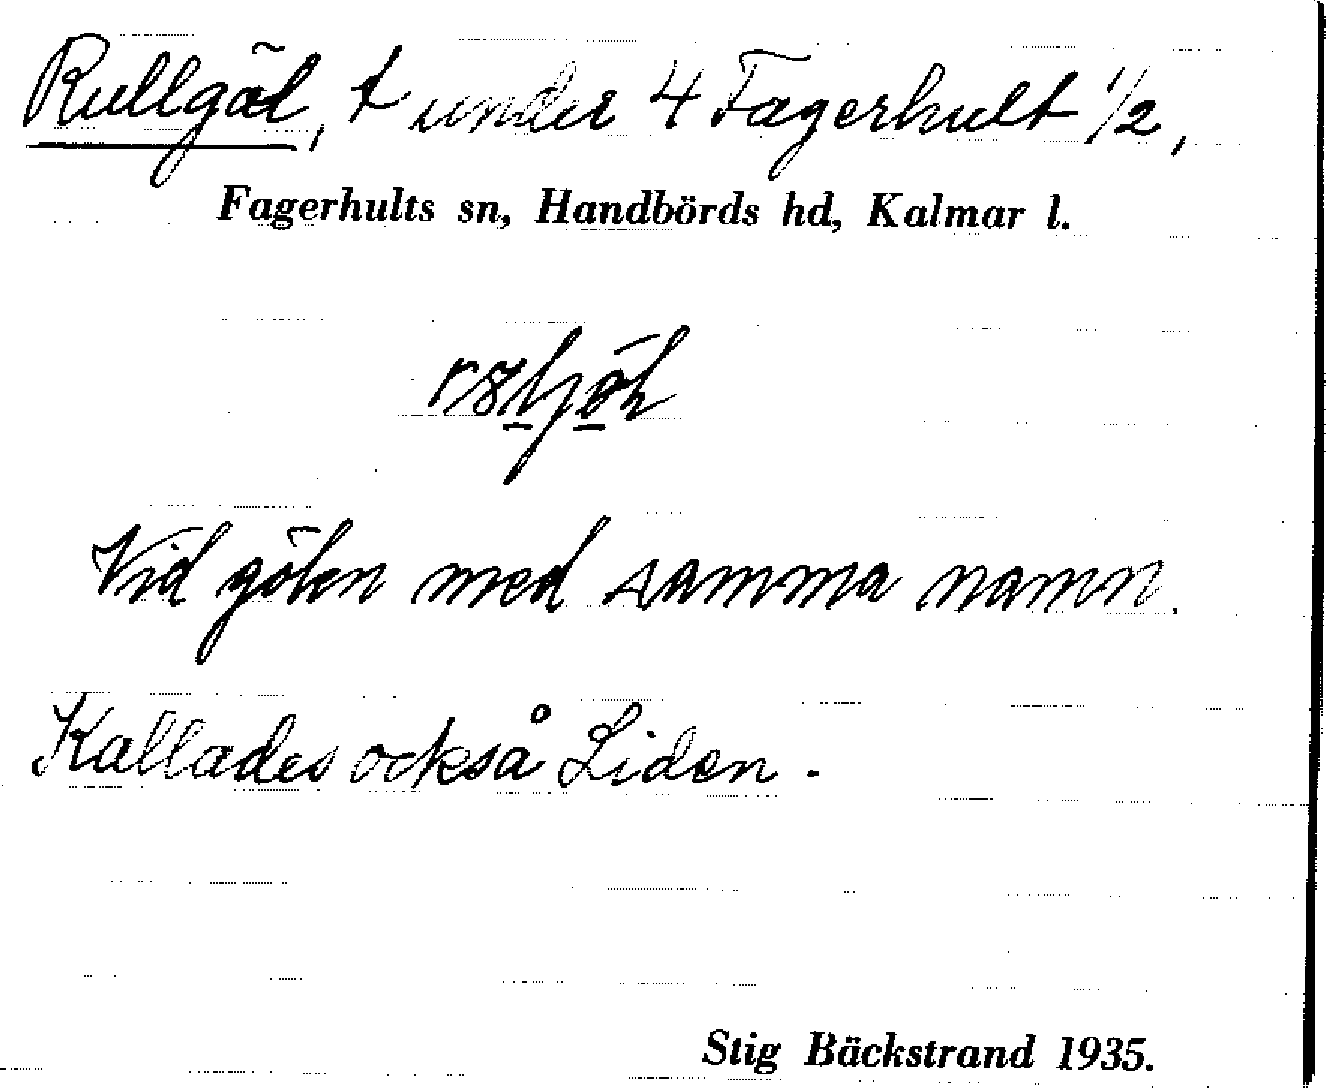 Rullgöl, t under 4 Fagerhult 1/2,
Fagerhults sn, Handbörds hd, Kalmar l.
Vid gölen med samma namn.
Kallades också Liden.
Stig Bäckstrand 1935.